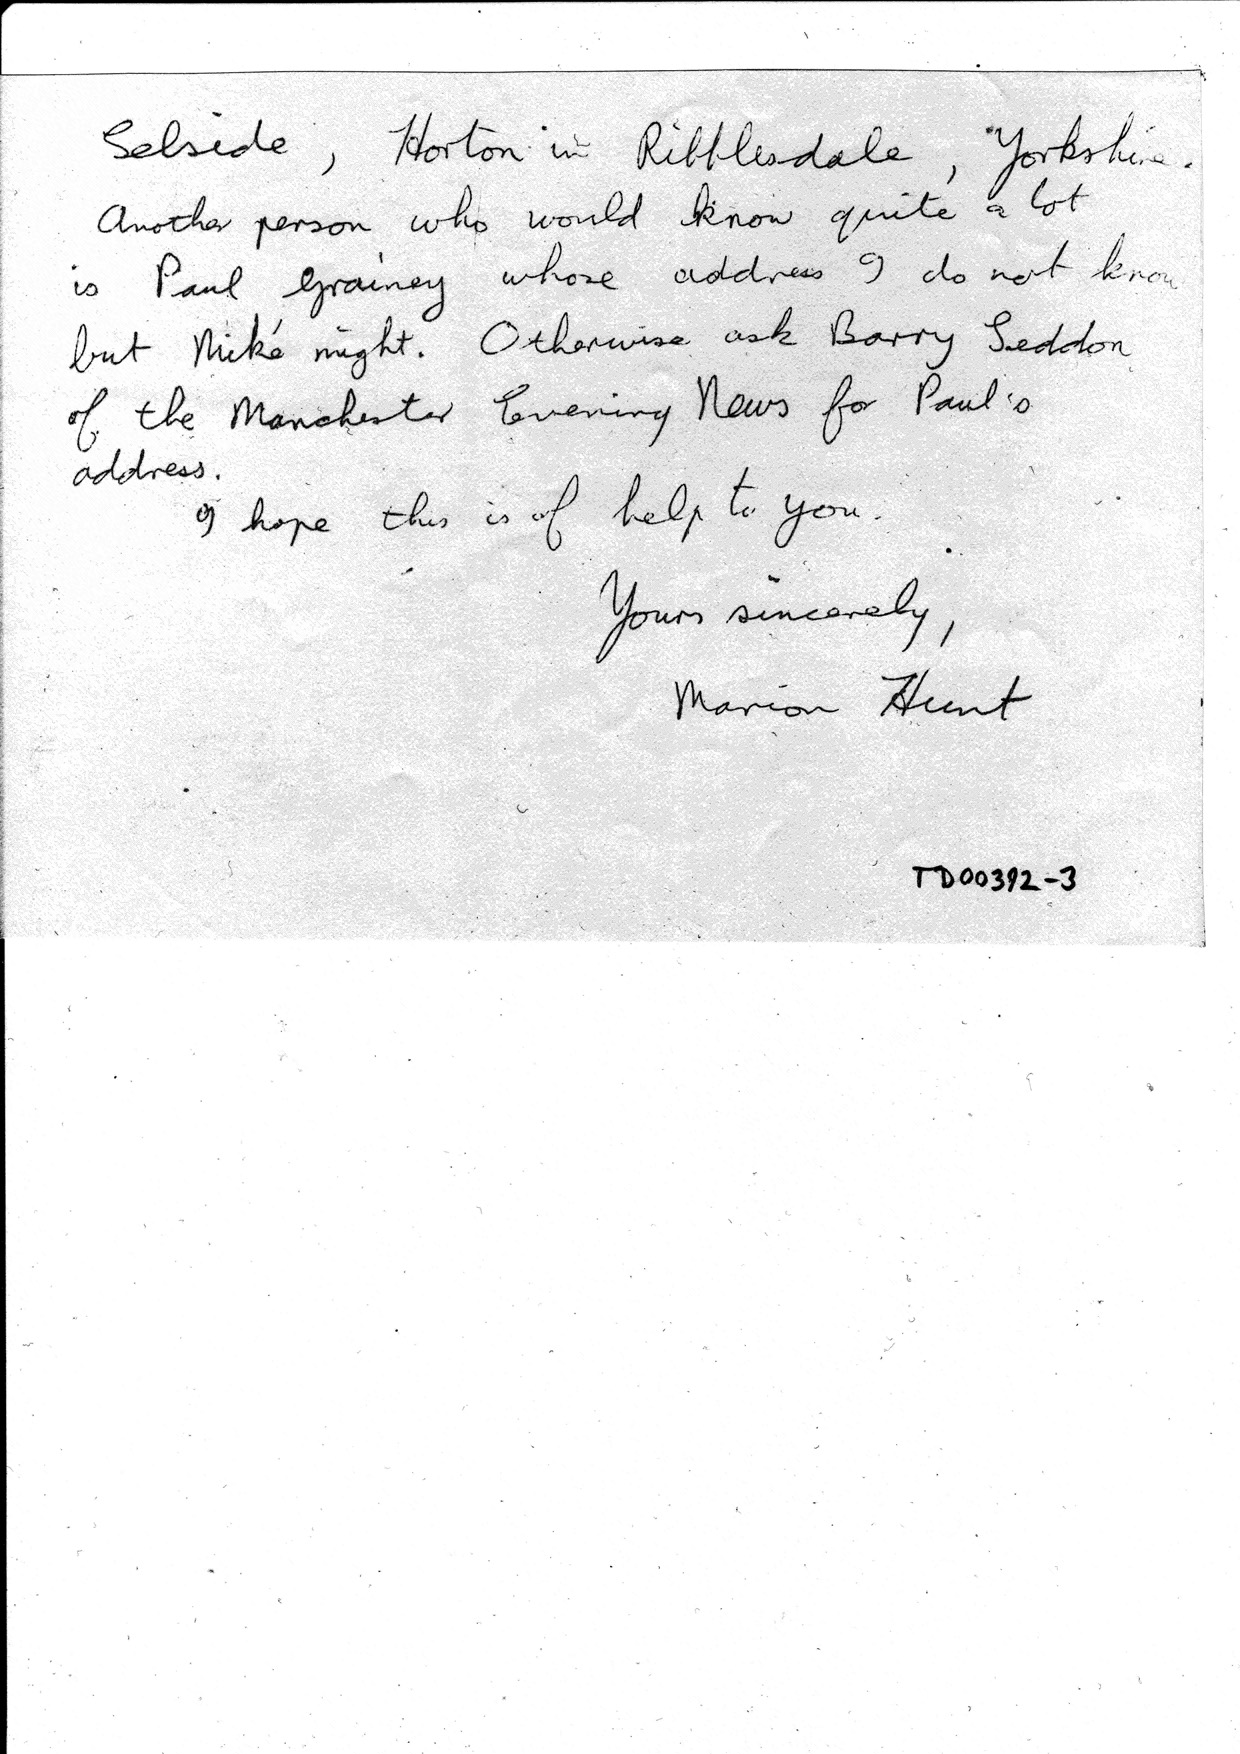 Selside, Horton in Ribblesdale, Yorkshire.
Another person who would know quite a lot
is Paul Grainey whose address I do not know
but Mike might. Otherwise ask Barry Seddon
of the Manchester Evening News for Paul's
address.
I hope this is of help to you.
Yours sincerely,
Marion Hunt
TD00392-3